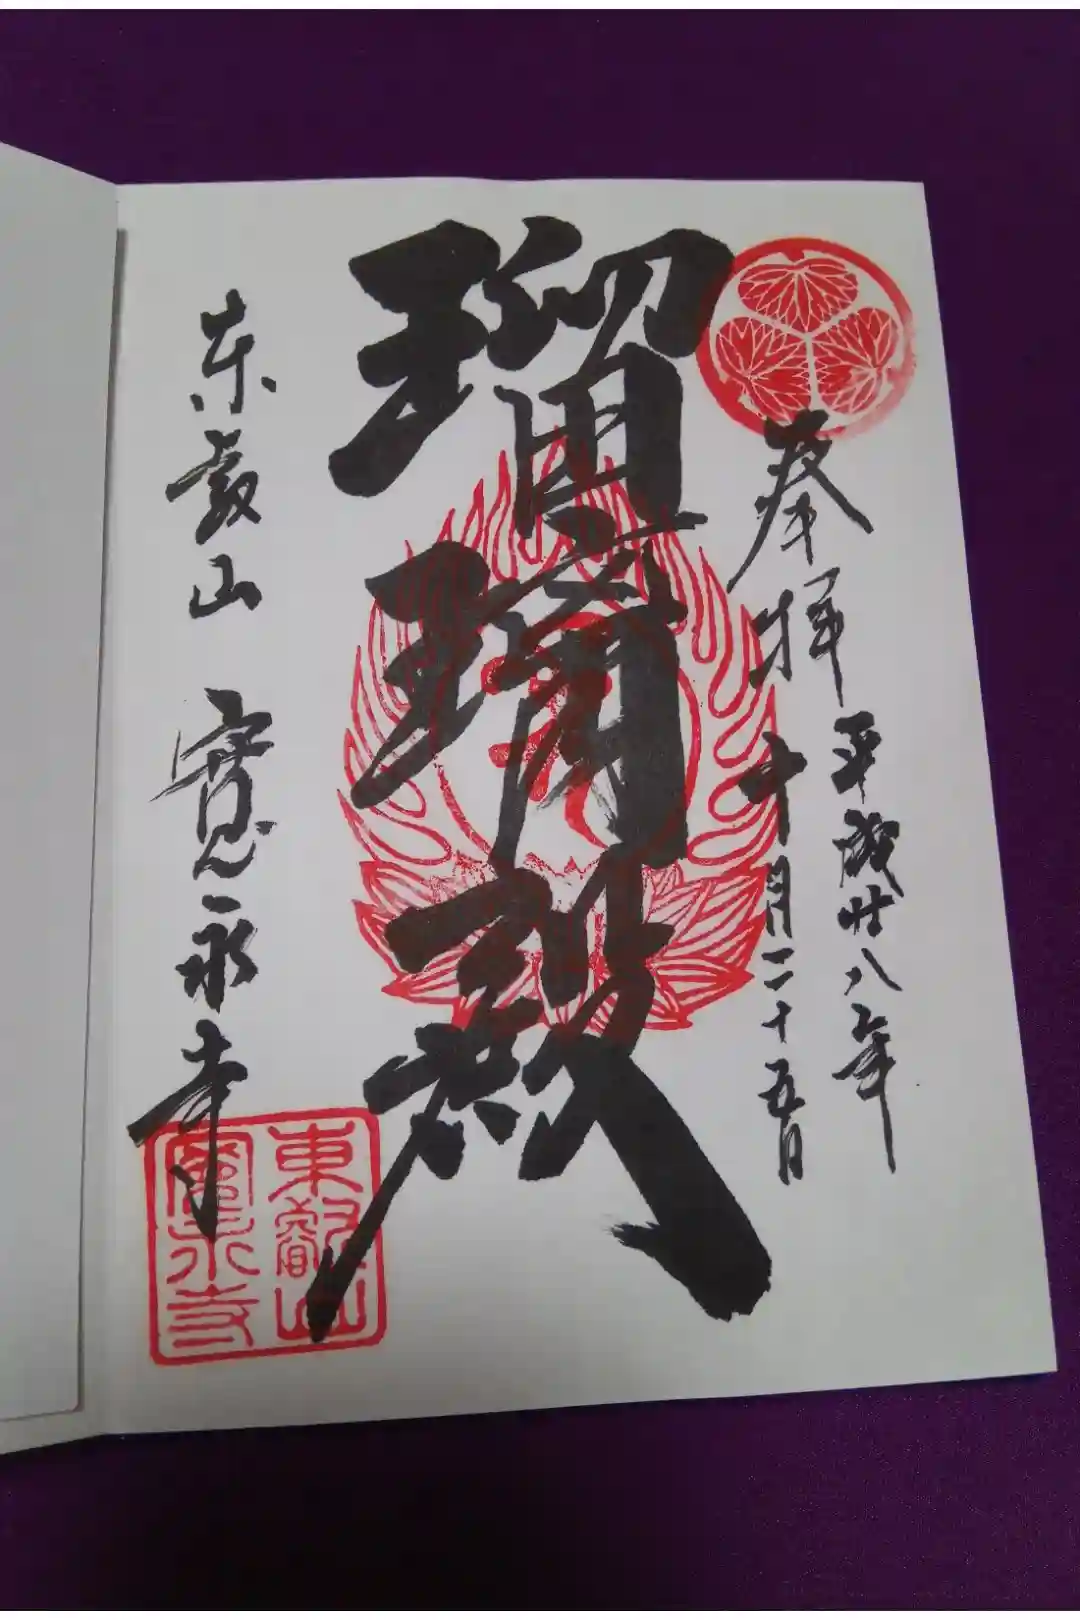 奉拝
平成廿八年
十月二十五日
瑠璃殿
東叡山 寛永寺
東叡山
寛永寺